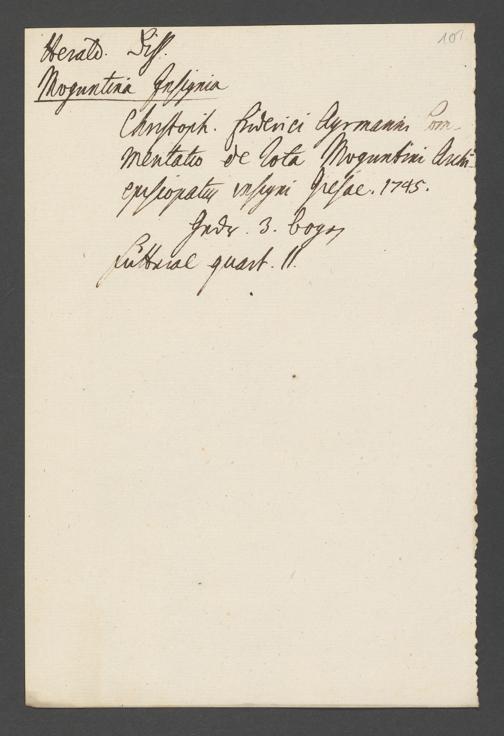 101.
Herald. Diss.
Moguntina Insignia
Christoph. Friderici Ayrmanni Com-
mentatio de Rota Moguntini Archi-
episcopatus insigni Giessae. 1745.
3. Bogen
Futteral quart. 11.